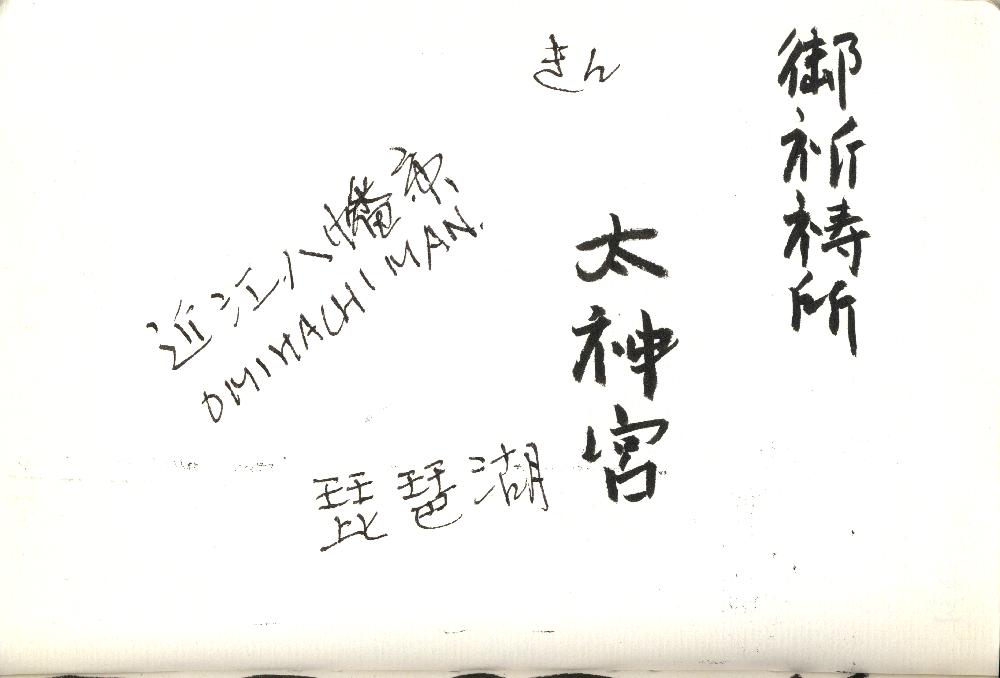 御祈祷所
太神宮
きん
近江八幡京
OMIHACHIMAN.
琵琶湖